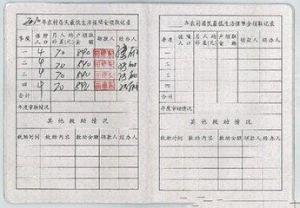 2010年农村居民最低生活保障金领取记录
季度 保障人口 月人均补差(元) 户领取金额 领款人 经办人
一 4 70 840
二 4 70 840
三 4 70 840
四 4 70 840
合计
年度审核情况
其他救助情况
救助时间 救助内容 救助金额 领款人 经办人
年农村居民最低生活保障金领取记录
季度 保障人口 月人均补差(元) 户领取金额 领款人 经办人
一
二
三
四
合计
年度审核情况
其他救助情况
救助时间 救助内容 救助金额 领款人 经办人